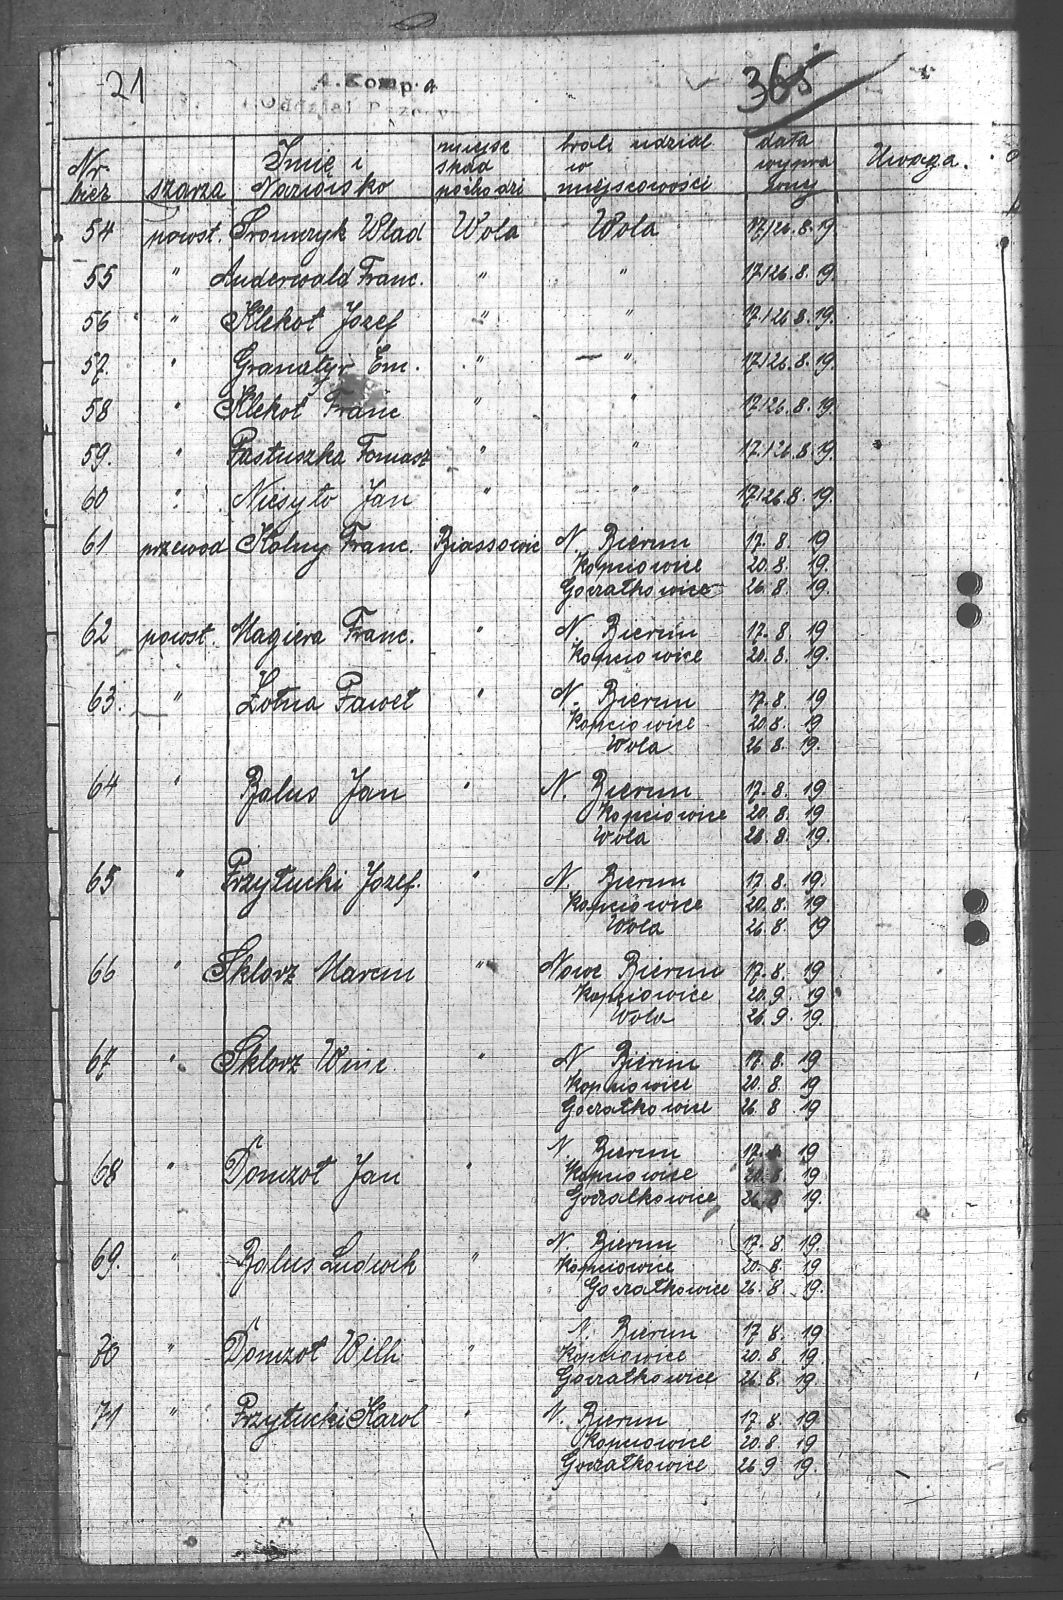 21 A. Komp. 365
Oddział
Nr. bież szarża Imię i Nazwisko miejsc skąd pochodzi brali udział w miejscowości data wypra wy Uwaga.
54 powst. Fromczyk Wład Wola Wola 17./26.8.19
55 " Anderwald Franc. " " 17./26.8.19.
56 " Klekot Jozef " " 17./26.8.19.
57. " Granatyr Em. " " 17./26.8.19.
58 " Klekot Franc. " " 17./26.8.19.
59. " Pastuszka Tomasz " " 17./26.8.19.
60 " Niesyto Jan " " 17./26.8.19.
61 przewod Kolny Franc. Bjassowic N. Bierun 17.8.19
Kopciowice 20.8.19.
Goczałkowice 26.8.19.
62 powst. Magiera Franc. " N. Bierun 17.8.19
Kopciowice 20.8.19.
63. " Żołna Paweł " N. Bierun 17.8.19
Kopciowice 20.8.19
Wola 26.8.19.
64 " Balus Jan " N. Bierun 17.8.19
Kopciowice 20.8.19
Wola 26.8.19.
65 " Przytucki Jozef. " N. Bierun 17.8.19.
Kopciowice 20.8.19
Wola 26.8.19
66 " Sklorz Marcin " Nowe Bierun 17.8.19
Kopciowice 20.9.19
Wola 26.9.19.
67 " Sklorz Winc " N. Bierun 17.8.19
Kopciowice 20.8.19
Goczałkowice 26.8.19
68 " Domżoł Jan " N. Bierun 17.8.19
Kopciowice 20.8.19
Goczałkowice 26.8.19.
69. " Balus Ludwik " N. Bierun 17.8.19.
Kopciowice 20.8.19
Goczałkowice 26.8.19.
70 " Domżoł Wilh " N. Bierun 17.8.19
Kopciowice 20.8.19.
Goczałkowice 26.8.19.
71 " Przytucki Karol " N. Bierun 17.8.19
Kopciowice 20.8.19
Goczałkowice 26.9.19.